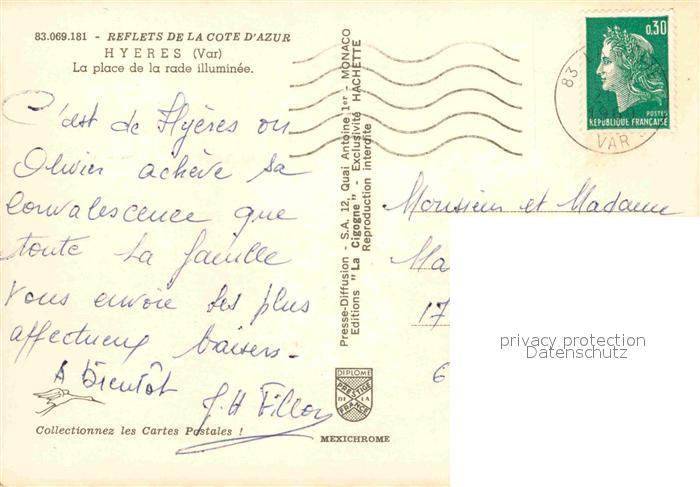 83.069.181 - REFLETS DE LA COTE D'AZUR
HYERES (Var)
La place de la rade illuminée.
C'est de Hyères ou
Olivier achève sa
convalescence que
toute la famille
vous envoie ses plus
affectueux baisers.
A bientôt
J.H Fillon
Collectionnez les Cartes Postales !
Presse-Diffusion - S.A. 12, Quai Antoine 1er - MONACO
Editions "La Cigogne" - Exclusivité HACHETTE
Reproduction interdite
DIPLOME
PRESTIGE
DE LA
FRANCE
MEXICHROME
0,30
POSTES
REPUBLIQUE FRANÇAISE
83
VAR
Monsieur et Madame
Ma
17
6
privacy protection
Datenschutz